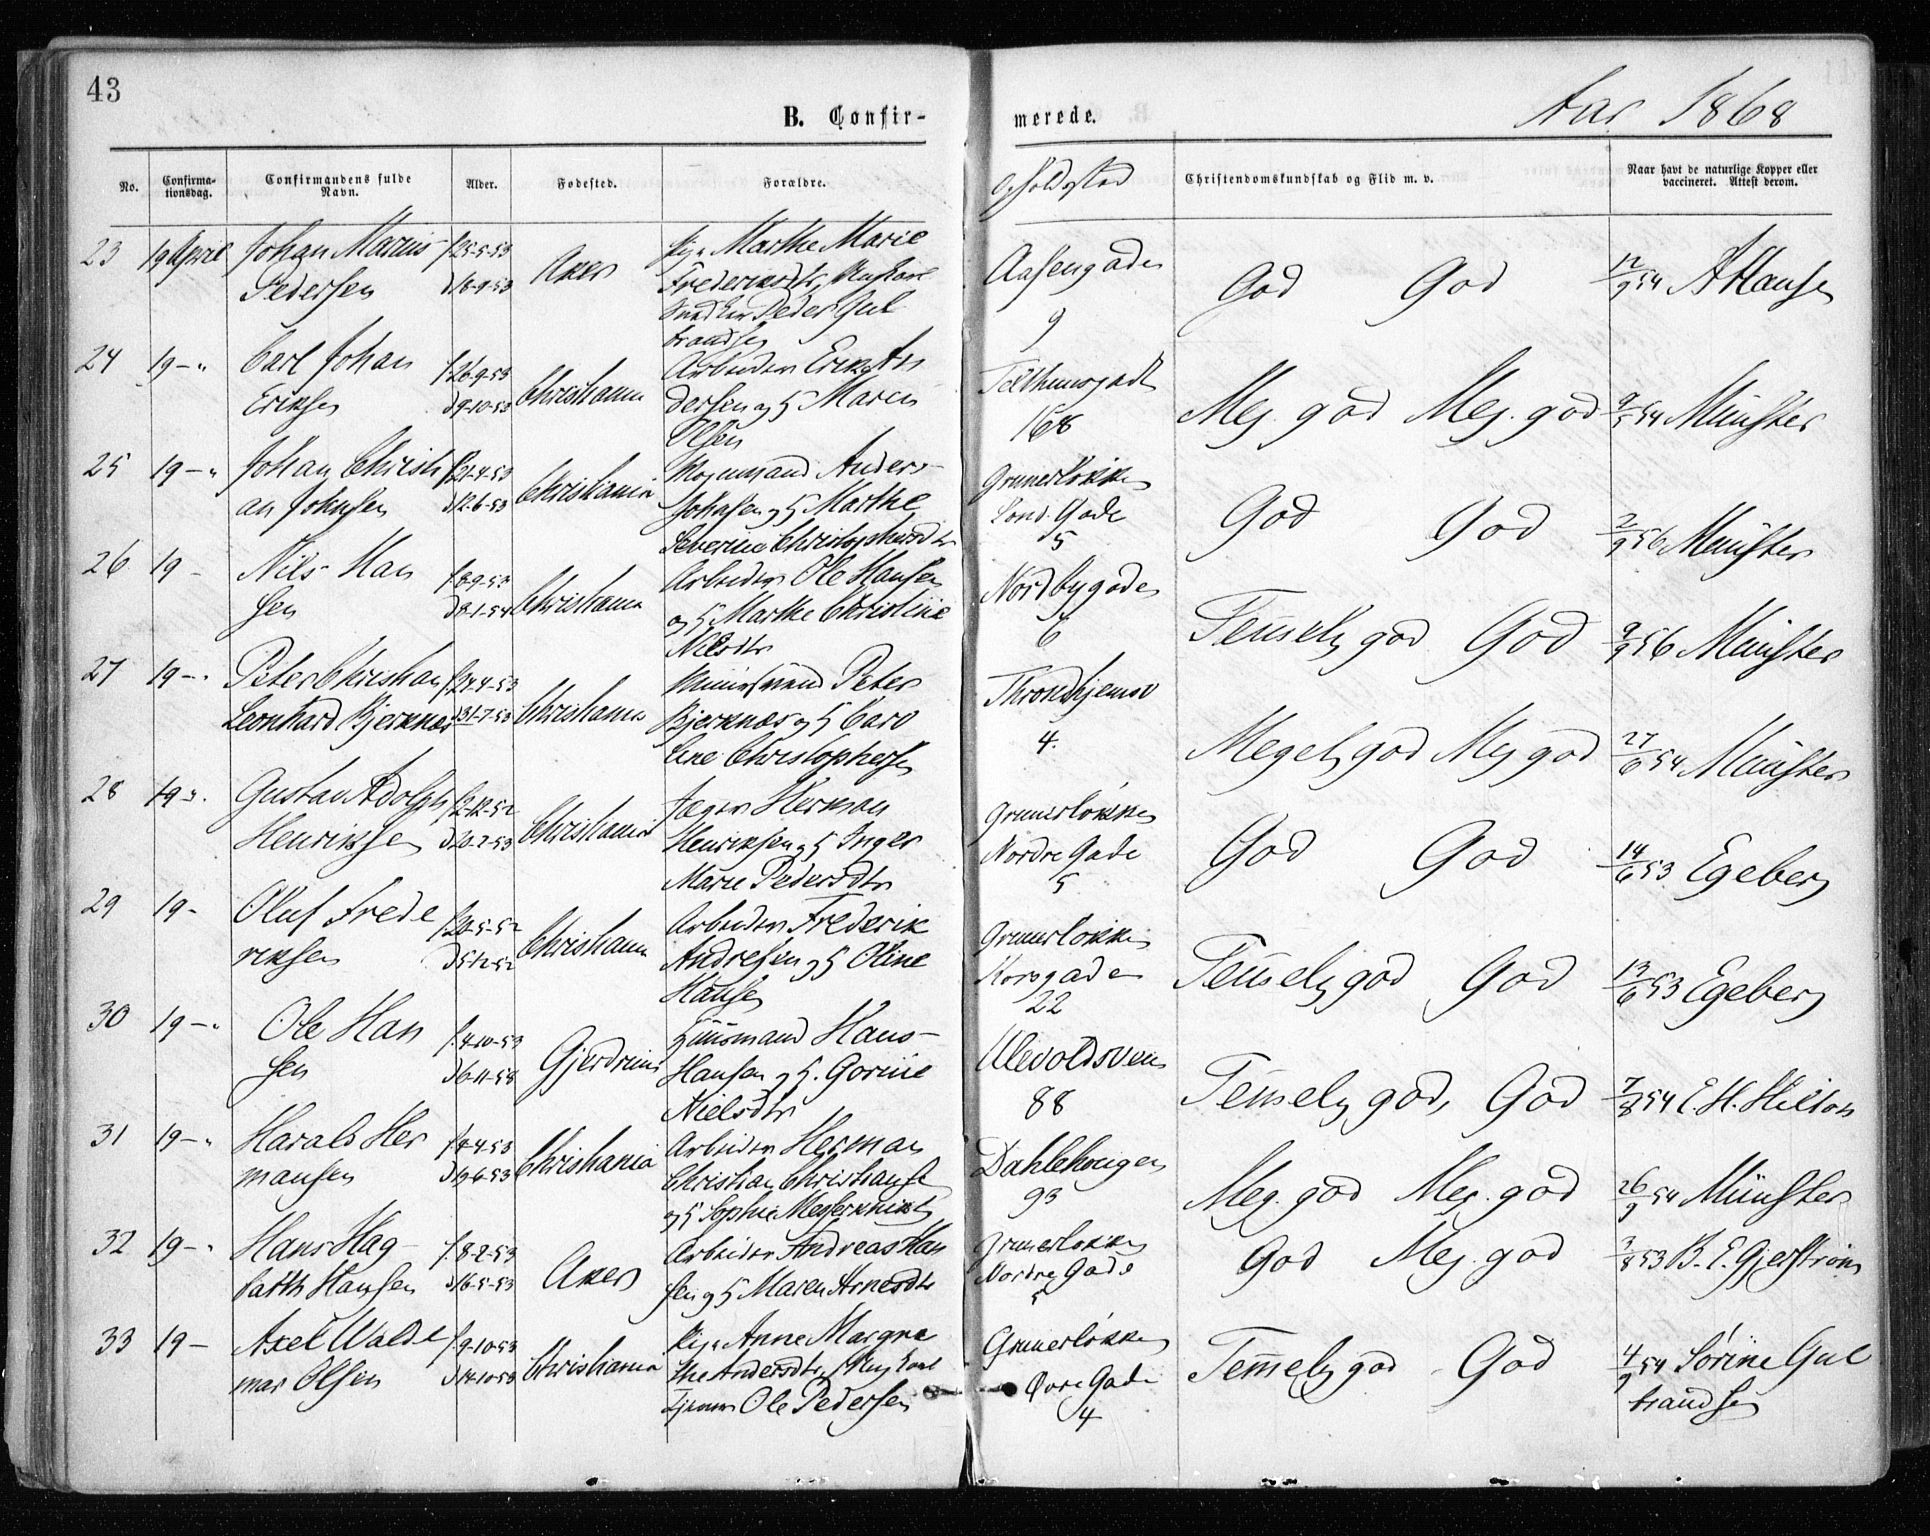 43
B. Confir-
merede.
Aar 1868
No.
Confirma-
tionsdag.
Confirmandens fulde
Navn.
Alder.
Fødested.
Forældre.
Opholdsted
Christendomskundskab og Flid m. v.
Naar havt de naturlige Kopper eller
vaccineret. Attest derom.
23 19 April Johan Marius f. 25-5-53 Pige Marthe Marie Aasengaden 12/9 54 A Hansen
Pedersen d. 18-9-53 Aker Frederiksdtr, Ungkarl God God
Snedker Peder Gul 9
brandsen
24 19 - " Carl Johan f. 26-9-53 Christiania Arbeider Erik An Telthusgade
Eriksen d 9-10-53 dersen og H Maren Meg. god Meg. god 9/5 54 Münster
Olsen 168
25 19 - " Johan Christi f. 21-4-53 Christiania Anders Grunerløkken
an Johnsen d 12-6-53 Johnsen og H Marthe Gade God God 2/9 56 Münster
Severine Christophersdtr 5
26 19 - Nils Han f. 8-9-53 Christiania Arbeider Ole Hansen Nordbygaden
sen d 8-1-54 og H Marthe Christine 6 Temelig god God 9/9 56 Münster
Nilsdtr
27 19 - " Peter Christian f. 24-4-53 Christiania Peter Throndhjemsv
Leonhard Bjerknæs d 31-7-53 Bjerknæs og H Caro 4. Megelig god Meg god 27/6 54 Münster
line Christophersen
28 19 ". Gustav Adolph f. 2-12-52 Christiania Jæger Herman Grunerløkken
Henriksen d 20-2-53 Henriksen og H Inger Nordre Gade God God 14/6 53 Egeberg
Marie Pedersdtr 5
29 19 - Oluf Frede f. 20-5-52 Christiania Arbeider Frederik Grunerløkken
riksen d 5-12-52 Andresen og H Oline Korsgaden Temelig god God 13/6 53 Egeberg
Hansen 22
30 19 - " Ole Han f. 4-10-53 Gjerdrum Huusmand Hans Ulevoldsveien
sen d 6-11-53 Hansen og H. Gorine 88 Temelig god, God 7/8 54 E. H. Hilton
Nielsdtr
31 19 - " Harald Her f. 4-4-53 Christiania Arbeider Herman Dahlehougen
mansen d 19-6-53 Christian Christiansen 93 Meg. god Meg. god 26/9 54 Münster
og H Sophie
32 19 - " Hans Hag f. 8-2-53 Aker Arbeider Andreas Han Grunerløkken God Meg. god 3/8 53 B. E. Gjerstrøm
barth Hansen d 16-5-53 sen og H Maren Arnesdtr Nordre Gade
5
33 19 - Axel Walde f. 9-10-53 Christiania Pige Anne Margre Grunerløkken
mar Olsen d 14-10-53 the Andersdtr, Ungkarl Øvre Gade Temelig god God 4/9 54 Sørine Gul
Ole Pedersen 4 brandsen